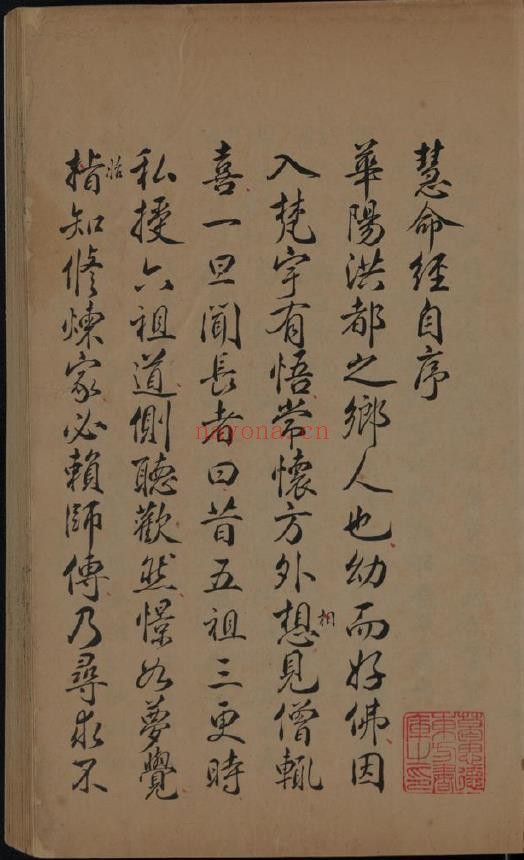 慧命經自序
華陽洪都之鄉人也幼而好佛因
入梵宇有悟常懷方外想見僧輒
相
喜一旦聞長者曰昔五祖三更時
私授六祖道側聽歡然憬如夢覺
始
揩知修煉家必賴師傳乃尋求不
nayona.cn
葛思德
東方書
庫之印